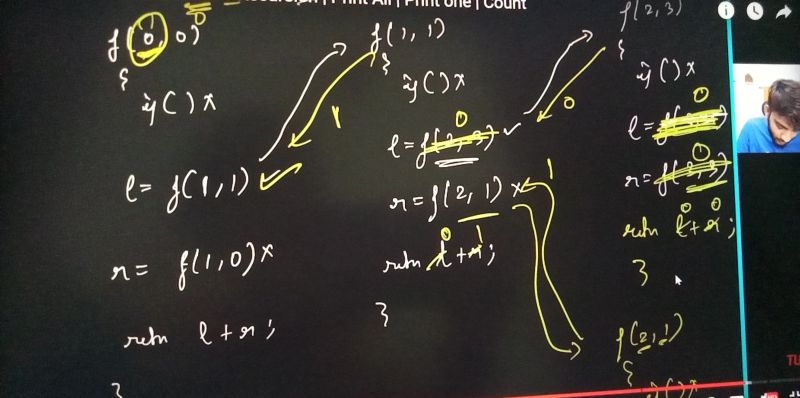 Print All | Print one | Count
0
f(0, 0)
{
if()x
l = f(1, 1)
r = f(1, 0) x
retn l + r;
}
1
f(1, 1)
{
if()x
0
l = f(2, 3)
r = f(2, 1) x
1
0 1
retn l + r;
}
0
f(2, 3)
{
if()x
0
0
0 0
retn l + r;
}
f(2, 1)
{
if()x
TU